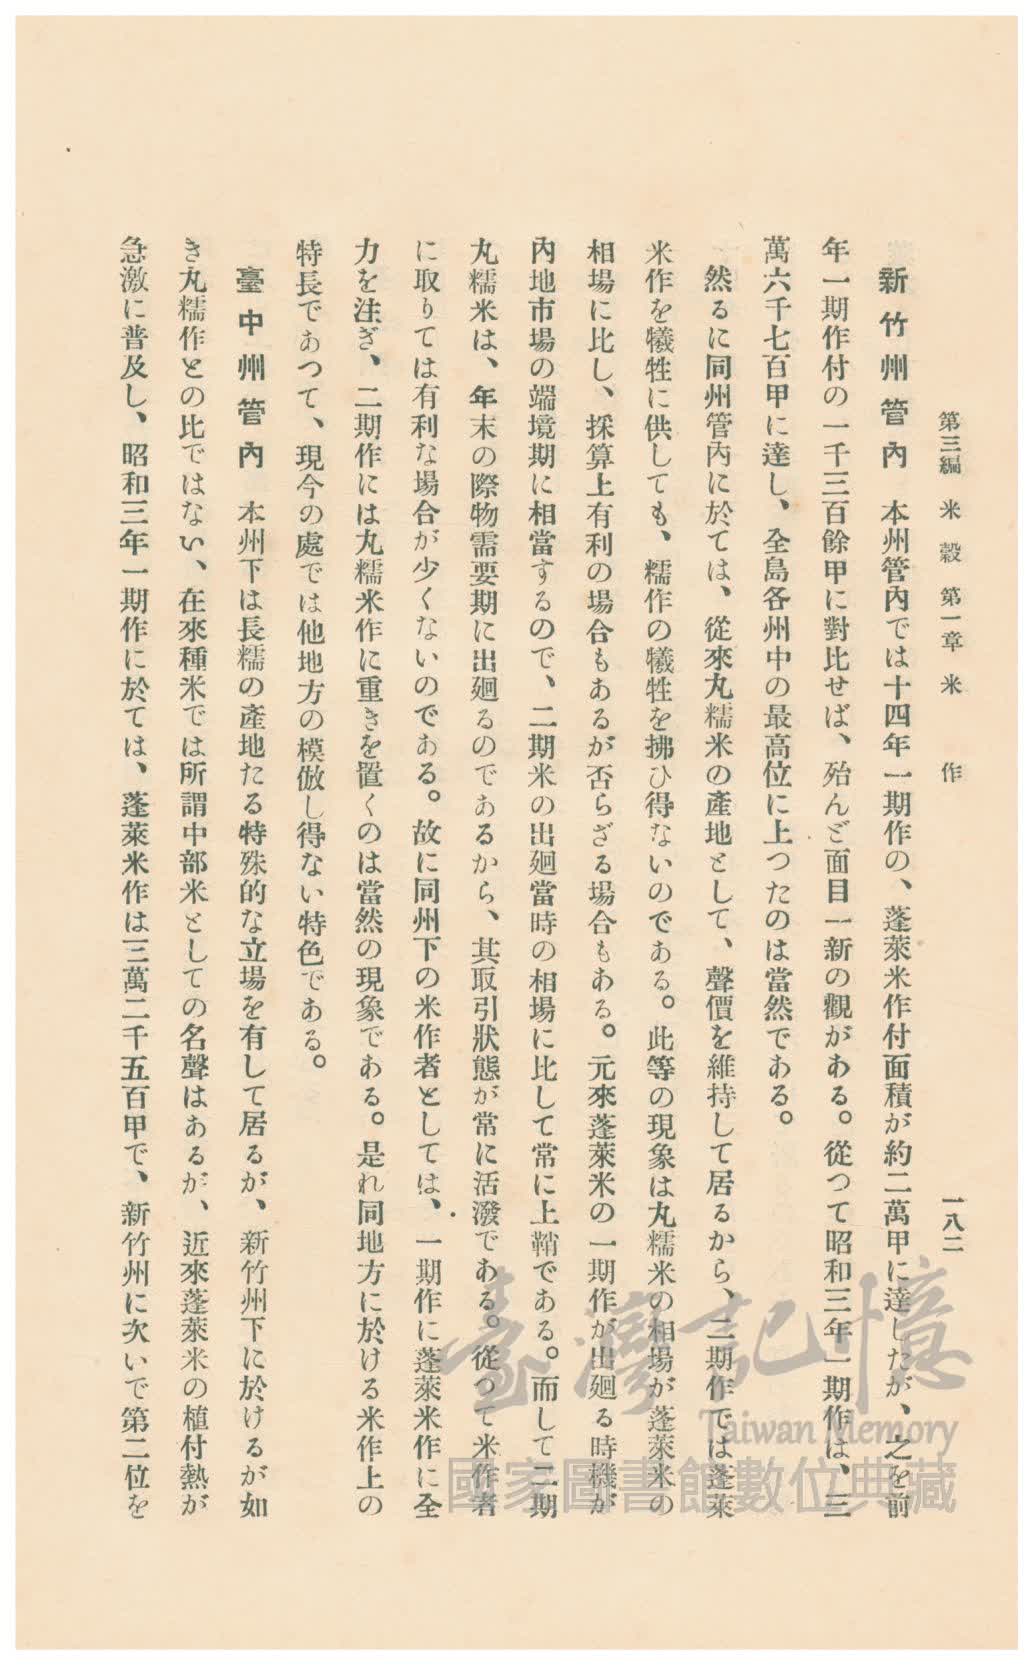 第三編 米穀 第一章 米作 一八二
新竹州管內 本州管內では十四年一期作の、蓬萊米作付面積が約二萬甲に達したが、之を前
年一期作付の一千三百餘甲に對比せば、殆んど面目一新の觀がある。從つて昭和三年一期作は、三
萬六千七百甲に達し、全島各州中の最高位に上つたのは當然である。
然るに同州管內に於ては、從來丸糯米の產地として、聲價を維持して居るから、二期作では蓬萊
米作を犧牲に供しても、糯作の犧牲を拂ひ得ないのである。此等の現象は丸糯米の相場が蓬萊米の
相場に比し、採算上有利の場合もあるが否らざる場合もある。元來蓬萊米の一期作が出廻る時機が
內地市場の端境期に相當するので、二期米の出廻當時の相場に比して常に上鞘である。而して二期
丸糯米は、年末の際物需要期に出廻るのであるから、其取引狀態が常に活潑である。從つて米作者
に取りては有利な場合が少くないのである。故に同州下の米作者としては、一期作に蓬萊米作に全
力を注ぎ、二期作には丸糯米作に重きを置くのは當然の現象である。是れ同地方に於ける米作上の
特長であつて、現今の處では他地方の模倣し得ない特色である。
臺中州管內 本州下は長糯の產地たる特殊的な立場を有して居るが、新竹州下に於けるが如
き丸糯作との比ではない、在來種米では所謂中部米としての名聲はあるが、近來蓬萊米の植付熱が
急激に普及し、昭和三年一期作に於ては、蓬萊米作は三萬二千五百甲で、新竹州に次いで第二位を
臺灣記憶
Taiwan Memory
國家圖書館數位典藏